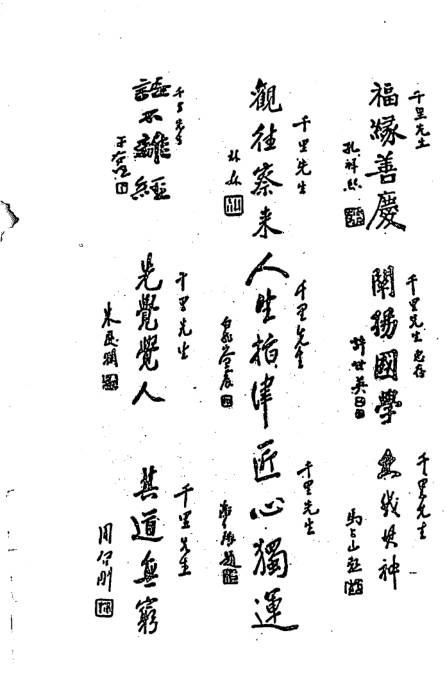 千里先生
福緣善慶
孔祥熙
千里先生惠存
闡揚國學
許世英
千里先生
馬占山題
千里先生
觀往察来
林森
千里先生
人生指津
千里先生
匠心獨運
千里先生
語不離經
于右任
千里先生
先覺覺人
朱民
千里先生
其道無窮
周佛剛